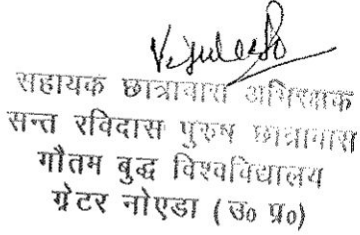 सहायक छात्रावास अभिरक्षक
सन्त रविदास पुरुष छात्रावास
गौतम बुद्ध विश्वविद्यालय
ग्रेटर नोएडा ( उ० प्र०)